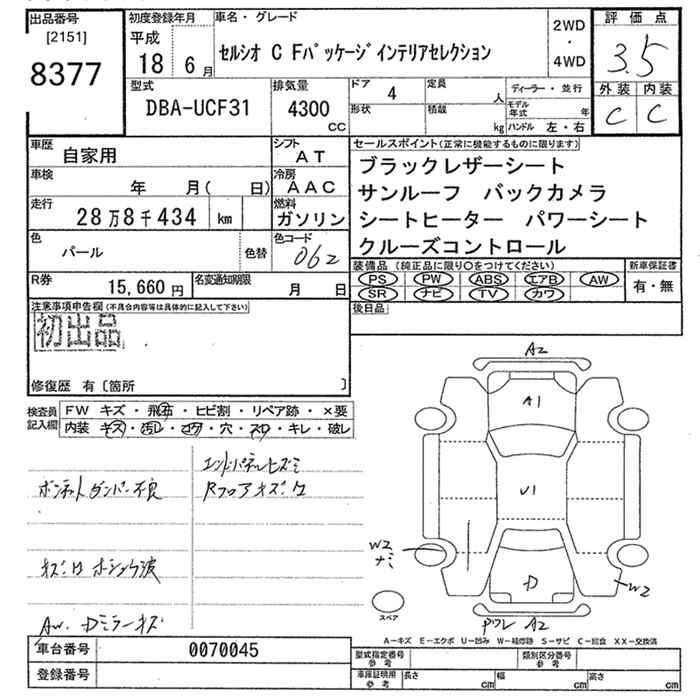 出品番号 [2151] 8377
初度登録年月 平成 18 6月
車名・グレード セルシオ C Fパッケージインテリアセレクション
2WD・4WD
評価点 3.5
外装 内装
C C
型式 DBA-UCF31
排気量 4300 CC
ドア 4
定員 人
形状
積載 kg
ディーラー・並行
モデル年式 年
ハンドル 左・右
車歴 自家用
シフト AT
車検 年 月( 日)
冷房 AAC
走行 28万8千434 km
燃料 ガソリン
色 パール 色替
色コード 062
R券 15,660円
名変通知期限 月 日
セールスポイント(正常に機能するものに限ります)
ブラックレザーシート
サンルーフ バックカメラ
シートヒーター パワーシート
クルーズコントロール
装備品(純正品に限り〇をつけてください)
PS PW ABS エアB AW
SR ナビ TV カワ
新車保証書 有・無
後日品
注意事項申告欄(不具合内容等は具体的に記入して下さい)
初出品
修復歴 有〔箇所 〕
検査員記入欄
FW キズ・飛石・ヒビ割・リペア跡・×要
内装 キズ・汚レ・コゲ・穴・スレ・キレ・破レ
エンドパネルヒズミ
ボンネットダンパー不良
RフロアキズB
AW. Dミラーキズ
A2
A1
U1
W2
ナミ
D
W2
A2
スペア
A-キズ E-エクボ U-凹み W-補修跡 S-サビ C-腐食 XX-交換済
車台番号 0070045
登録番号
型式指定番号 参考
類別区分番号 参考
車庫証明用 参考
長さ cm
幅 cm
高さ cm